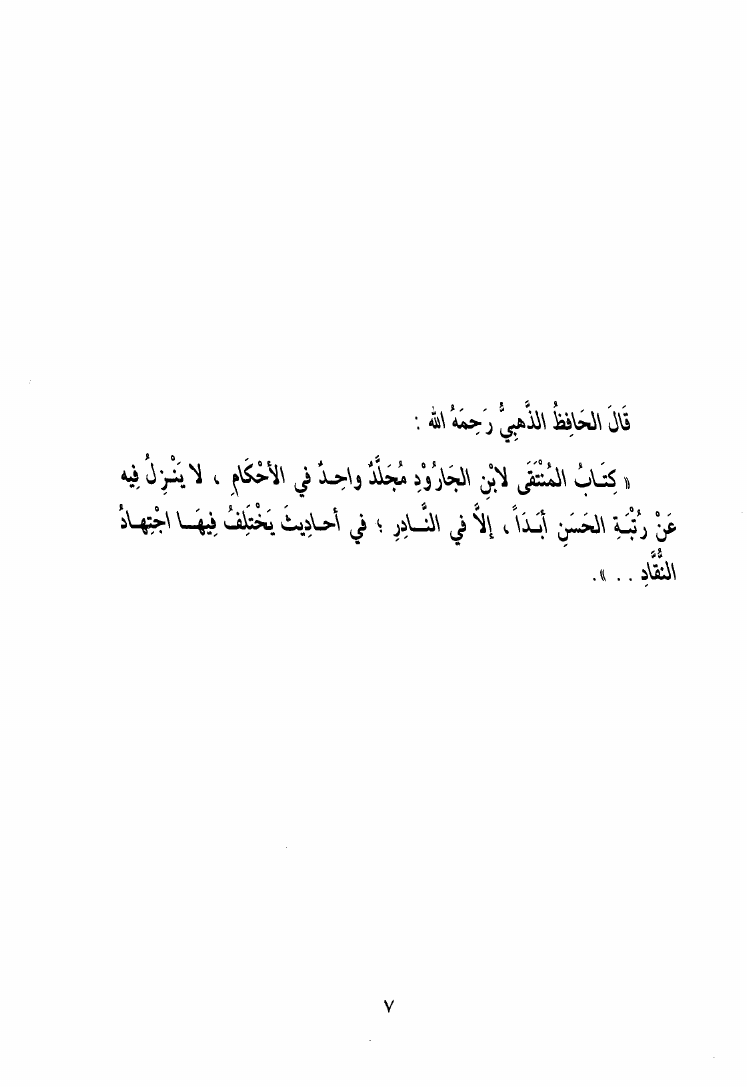 قَالَ الحَافِظُ الذَّهبِيُّ رَحِمَهُ الله :
« كِتَـابُ المُنْتَقَى لابْنِ الجَارُوْدِ مُجَلَّدٌ واحِـدٌ في الأحْكَامِ ، لا يَنْـزِلُ فِيه
عَنْ رُتْبَـةِ الحَسَنِ أبَـدَاً ، إلاَّ في النَّـادِرِ ؛ في أحـادِيثَ يَخْتَلِفُ فِيهَـا اجْتِهـادُ
النُّقَّادِ . . ».
٧